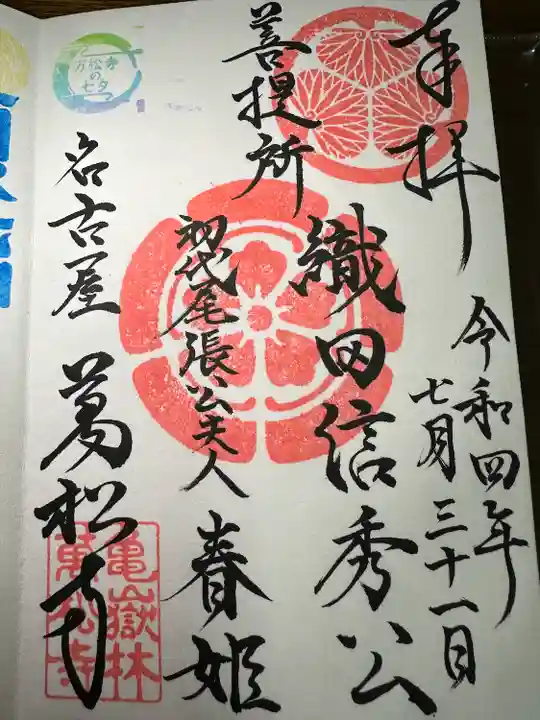 奉拝
令和四年
七月三十一日
織田信秀公
菩提所
初代尾張公夫人
春姫
名古屋
萬松寺
万松寺
の
七夕
亀嶽林
萬松寺